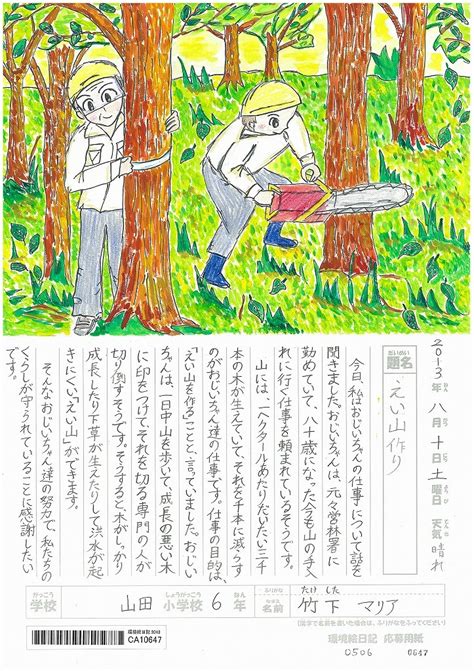 2013年八月十日土曜日 天気 晴れ
だいめい
題名
えい山作り
今日、私はおじいちゃんの仕事について話を
聞きました。おじいちゃんは、元々営林署に
勤めていて、八十歳になった今も山の手入
れに行く仕事を頼まれているそうです。
山には、一ヘクタールあたりだいたい三千
本の木が生えていて、それを千本に減らす
のがおじいちゃん達の仕事です。仕事の目的は、
「えい山を作る」ことと、言っていました。おじい
ちゃんは、一日中山を歩いて、成長の悪い木
に印をつけて、それを切る専門の人が
切り倒すそうです。そうすると、木がしっかり
成長したり下草が生えたりして洪水が起
きにくい「えい山」ができます。
そんなおじいちゃん達の努力で、私たちの
くらしが守られていることに感謝したい
です。
がっこう
学校
山田
しょうがっこう
小学校
6
ねん
年
ふりがな
なまえ
名前
たけ した
竹下 マリア
(本名以外の名前を書いた場合は、ふりがなをふってください)
環境絵日記2013
CA10647
環境絵日記 応募用紙
0506
0647